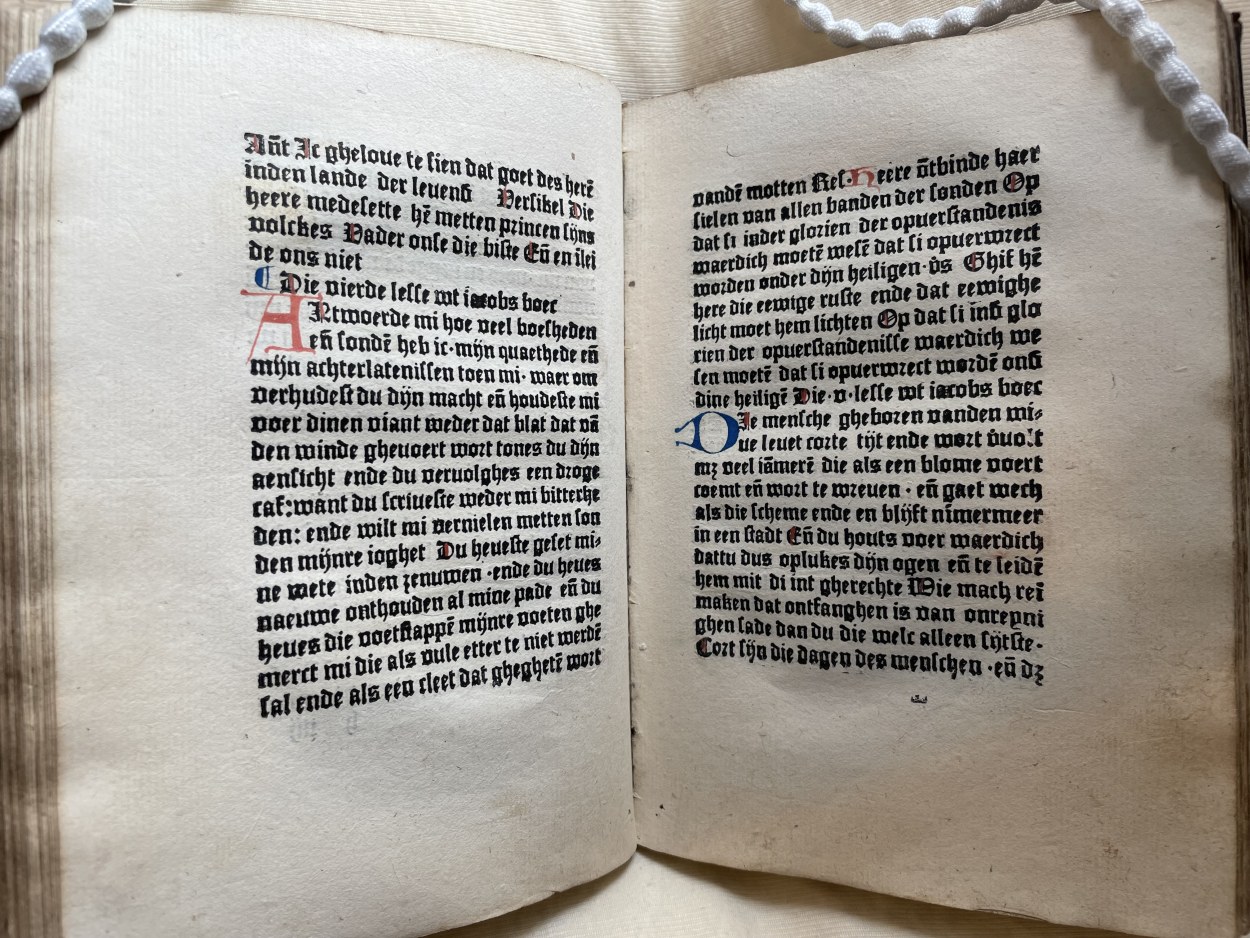 Añt Ic gheloue te sien dat goet des herē
inden lande der leuenß Versikel Die
heere medesette hē metten princen sijns
volckes Vader onse die biste Eñ en ilei
de ons niet
Die vierde lesse wt iacobs boec
ANtwoerde mi hoe veel boesheden
eñ sondē heb ic·mijn quaethede eñ
mijn achterlatenissen toen mi· waer om
verhudest du dijn macht eñ houdeste mi
voer dinen viant weder dat blat dat vā
den winde gheuoert wort tones du dijn
aensicht ende du veruolghes een droge
caf:want du scriueste weder mi bitterhe
den: ende wilt mi vernielen metten son
den mijnre ioghet Du heueste geset mi⸗
ne wete inden zenuwen ·ende du heues
naeuwe onthouden al mine pade eñ du
heues die voetstappē mijnre voeten ghe
merct mi die als vule etter te niet werdē
sal ende als een cleet dat gheghetē wort
vandē motten Res·Heere ōtbinde haer
sielen van allen banden der sonden Op
dat si inder glorien der opuerstandenis
waerdich moetē wesē dat si opuerwrect
worden onder dijn heiligen·v̄s Ghif hē
here die eewige ruste ende dat eewighe
licht moet hem lichten Op dat si inß glo
rien der opuerstandenisse waerdich we
sen moetē dat si opuerwrect wordē onß
dine heiligē Die·v·lesse wt iacobs boec
DIe mensche gheboren vanden wi⸗
ue leuet corte tijt ende wort v̄uolt
mꝫ veel iāmerē die als een blome voert
coemt eñ wort te wreuen · eñ gaet wech
als die scheme ende en blijft nīmermeer
in een stadt Eñ du houts voer waerdich
dattu dus oplukes dijn ogen eñ te leidē
hem mit di int gherechte Wie mach rei
maken dat ontfanghen is van onreyni
ghen sade dan du die welc alleen sijtste·
Cort sijn die dagen des menschen ·eñ dꝫ